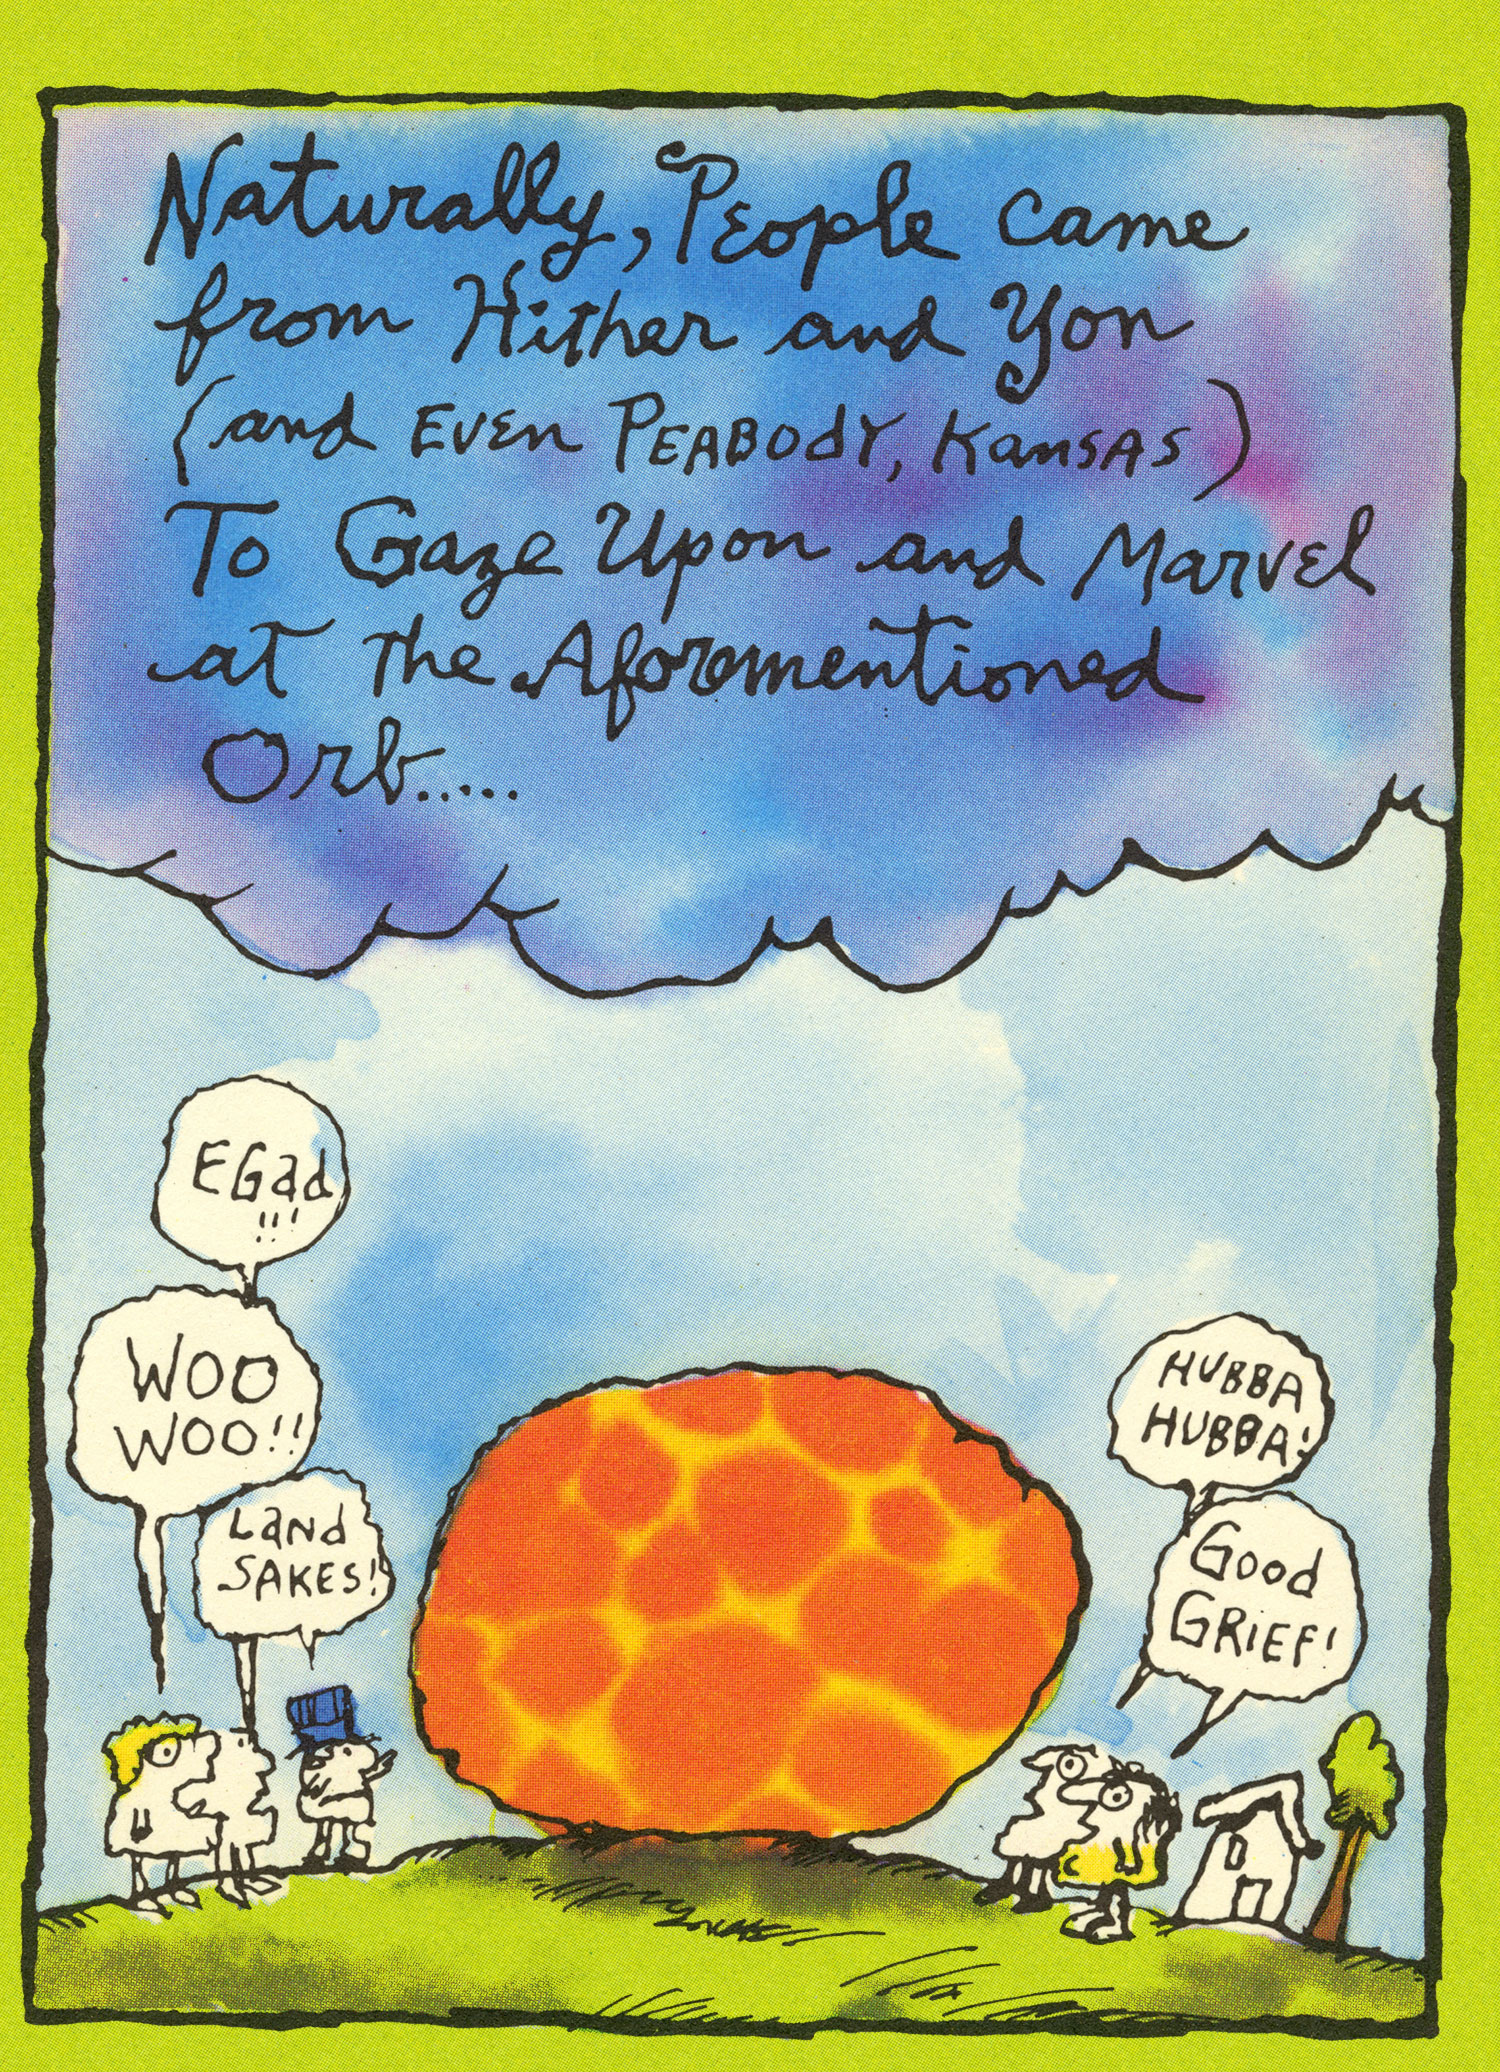 Naturally, People came
from Hither and Yon
(and Even PEABODY, KansAs)
To Gaze Upon and Marvel
at The Aforementioned
Orb.....
EGad
!!!
WOO
WOO!!
Land
SAKES!
HUBBA
HUBBA!
Good
GRIEF!